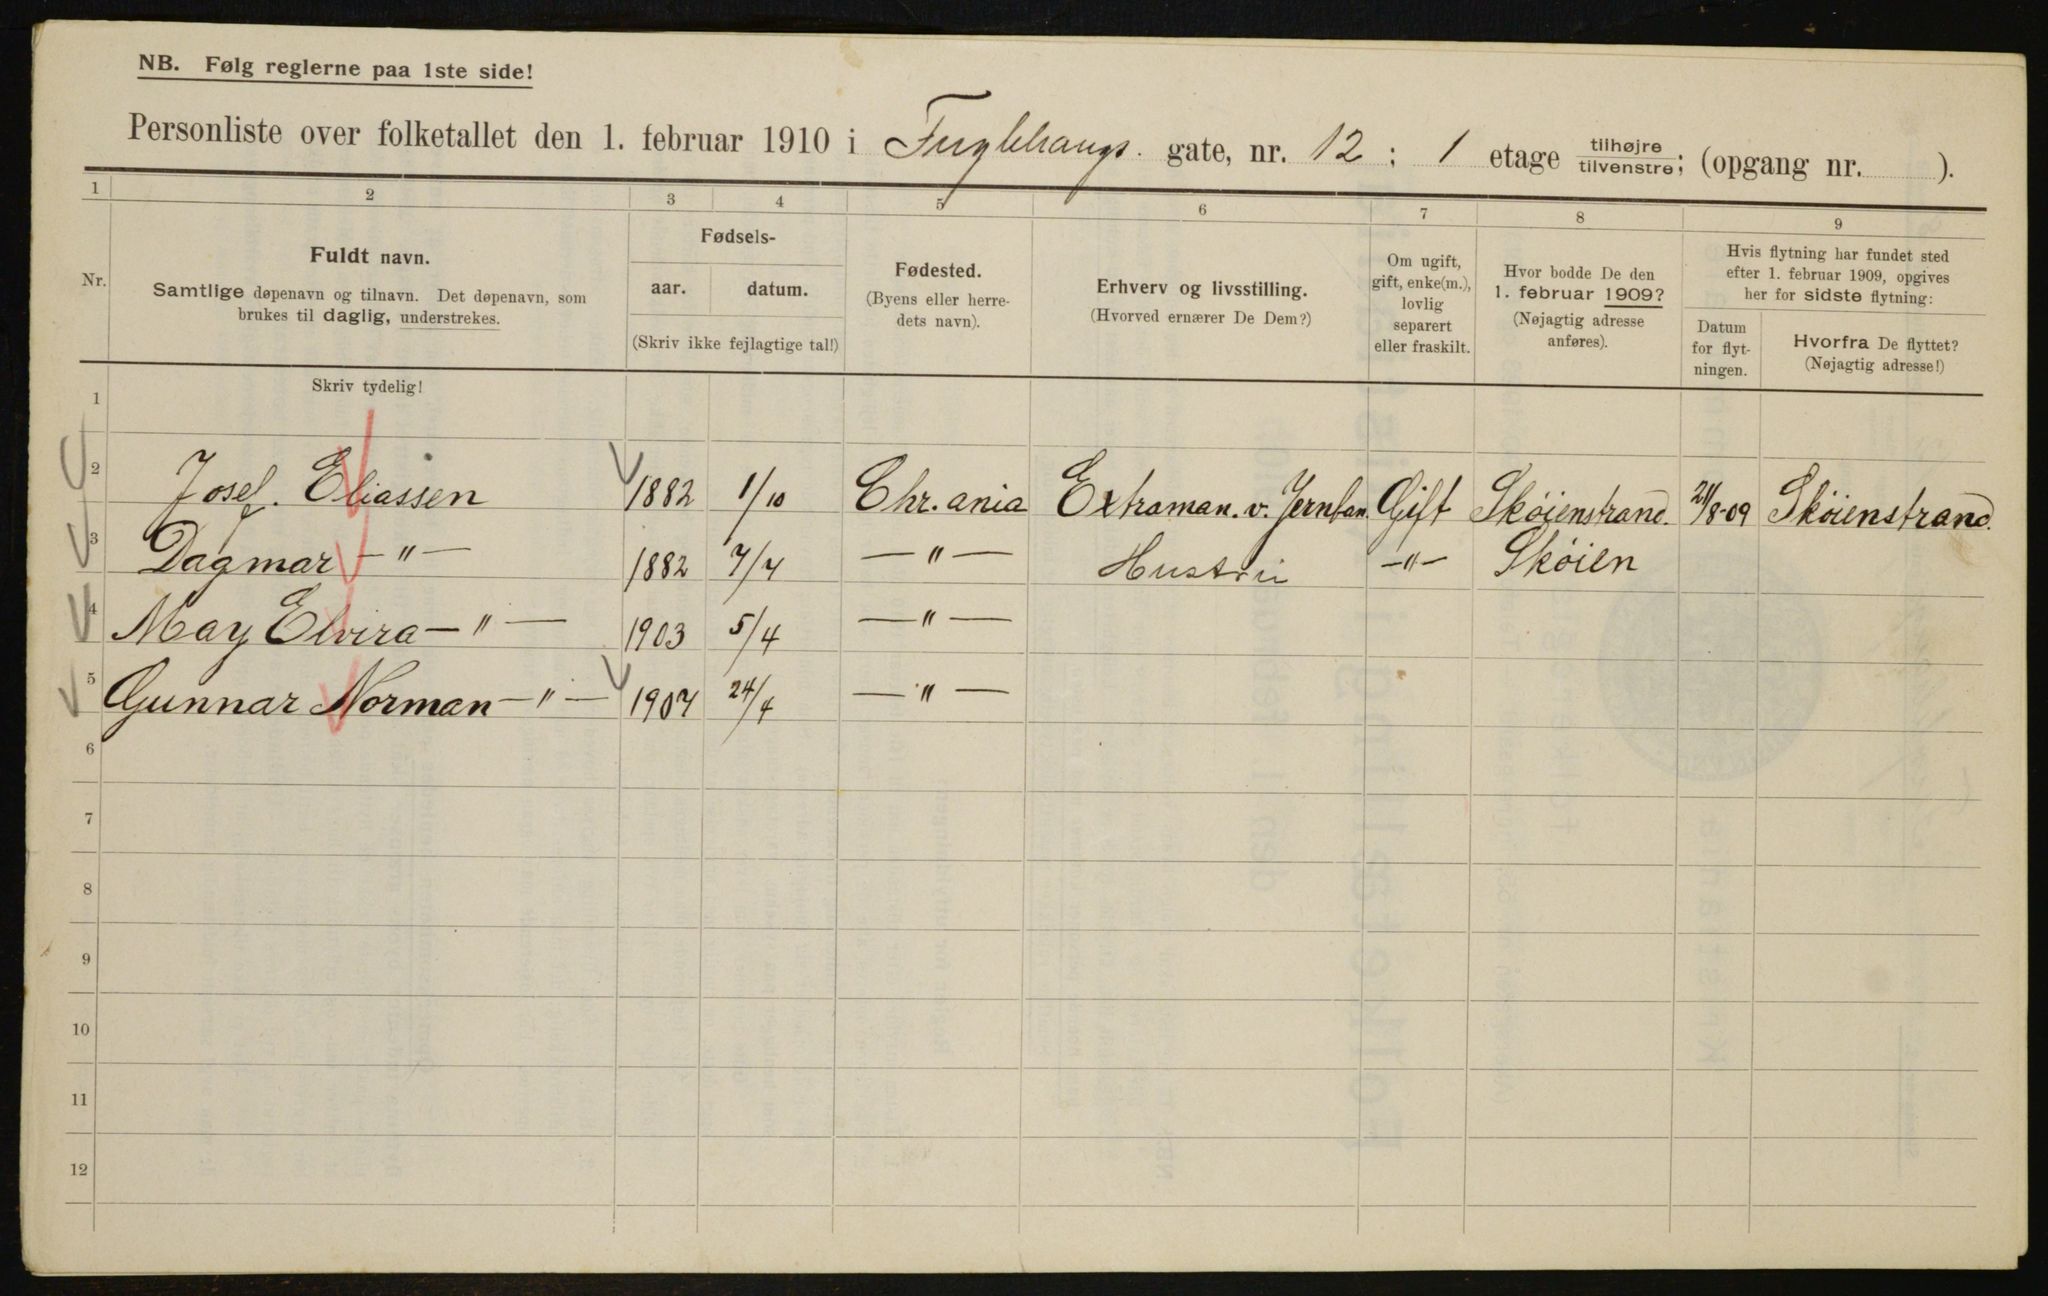 NB. Følg reglerne paa 1ste side!
Personliste over folketallet den 1. februar 1910 i Fuglehaugs. gate, nr. 12 ; 1 etage tilhøjre tilvenstre; (opgang nr. ).
1 2 3 4 5 6 7 8 9
Nr.
Fuldt navn.
Samtlige døpenavn og tilnavn. Det døpenavn, som
brukes til daglig, understrekes.
Fødsels-
aar. datum.
(Skriv ikke fejlagtige tal!)
Fødested.
(Byens eller herre-
dets navn).
Erhverv og livsstilling.
(Hvorved ernærer De Dem?)
Om ugift,
gift, enke(m.),
lovlig
separert
eller fraskilt.
Hvor bodde De den
1. februar 1909?
(Nøjagtig adresse
anføres).
Hvis flytning har fundet sted
efter 1. februar 1909, opgives
her for sidste flytning:
Datum
for flyt-
ningen.
Hvorfra De flyttet?
(Nøjagtig adresse!)
Skriv tydelig!
1
2 Josef. Eliassen 1882 1/10 Chr.ania Extraman. v. Jernban. Gift Skøienstrand. /8-09 Skøienstrand.
3 Dagmar —"— 1882 7/7 —"— Hustru —"— Skøien
4 May Elvira —"— 1903 5/4 —"—
5 Gunnar Norman —"— 1907 24/4 —"—
6
7
8
9
10
11
12